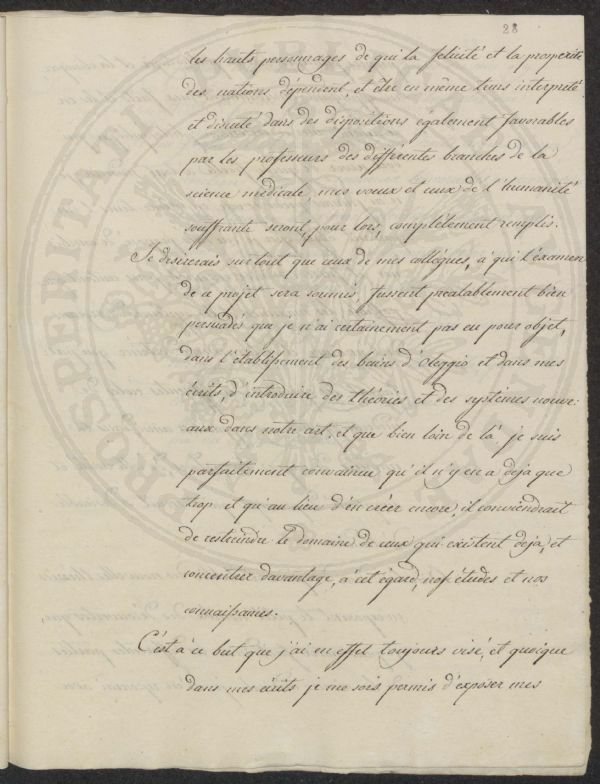 28
les hauts personnages de qui la felicité et la prosperité
des nations dépendent, et être en même tems interpreté
et discuté dans des dispositions également favorables
par les professeurs des différentes branches de la
science medicale, mes voeux et ceux de l'humanité
souffrante seront, pour lors, complètement remplis.
Je desirerais surtout que ceux de mes collégues, à qui l'éxamen
de ce projet sera soumis, fussent préalablement bien
persuadés que je n'ai certainement pas eu pour objet,
dans l'établissement des bains d'Oleggio et dans mes
écrits, d'introduire des théories et des systèmes nouve:
aux dans notre art, et que bien loin de là je suis
parfaitement convaincu qu'il n'y en a deja que
trop et qu'au lieu d'en créer encore, il conviendrait
de restreindre le domaine de ceux qui existent deja, et
concentrer davantage, à cet égard, nos études et nos
connaissances.
C'est à ce but que j'ai en effet toujours visé, et quoique
dans mes écrits je me sois permis d'exposer mes
PROSPERITATI